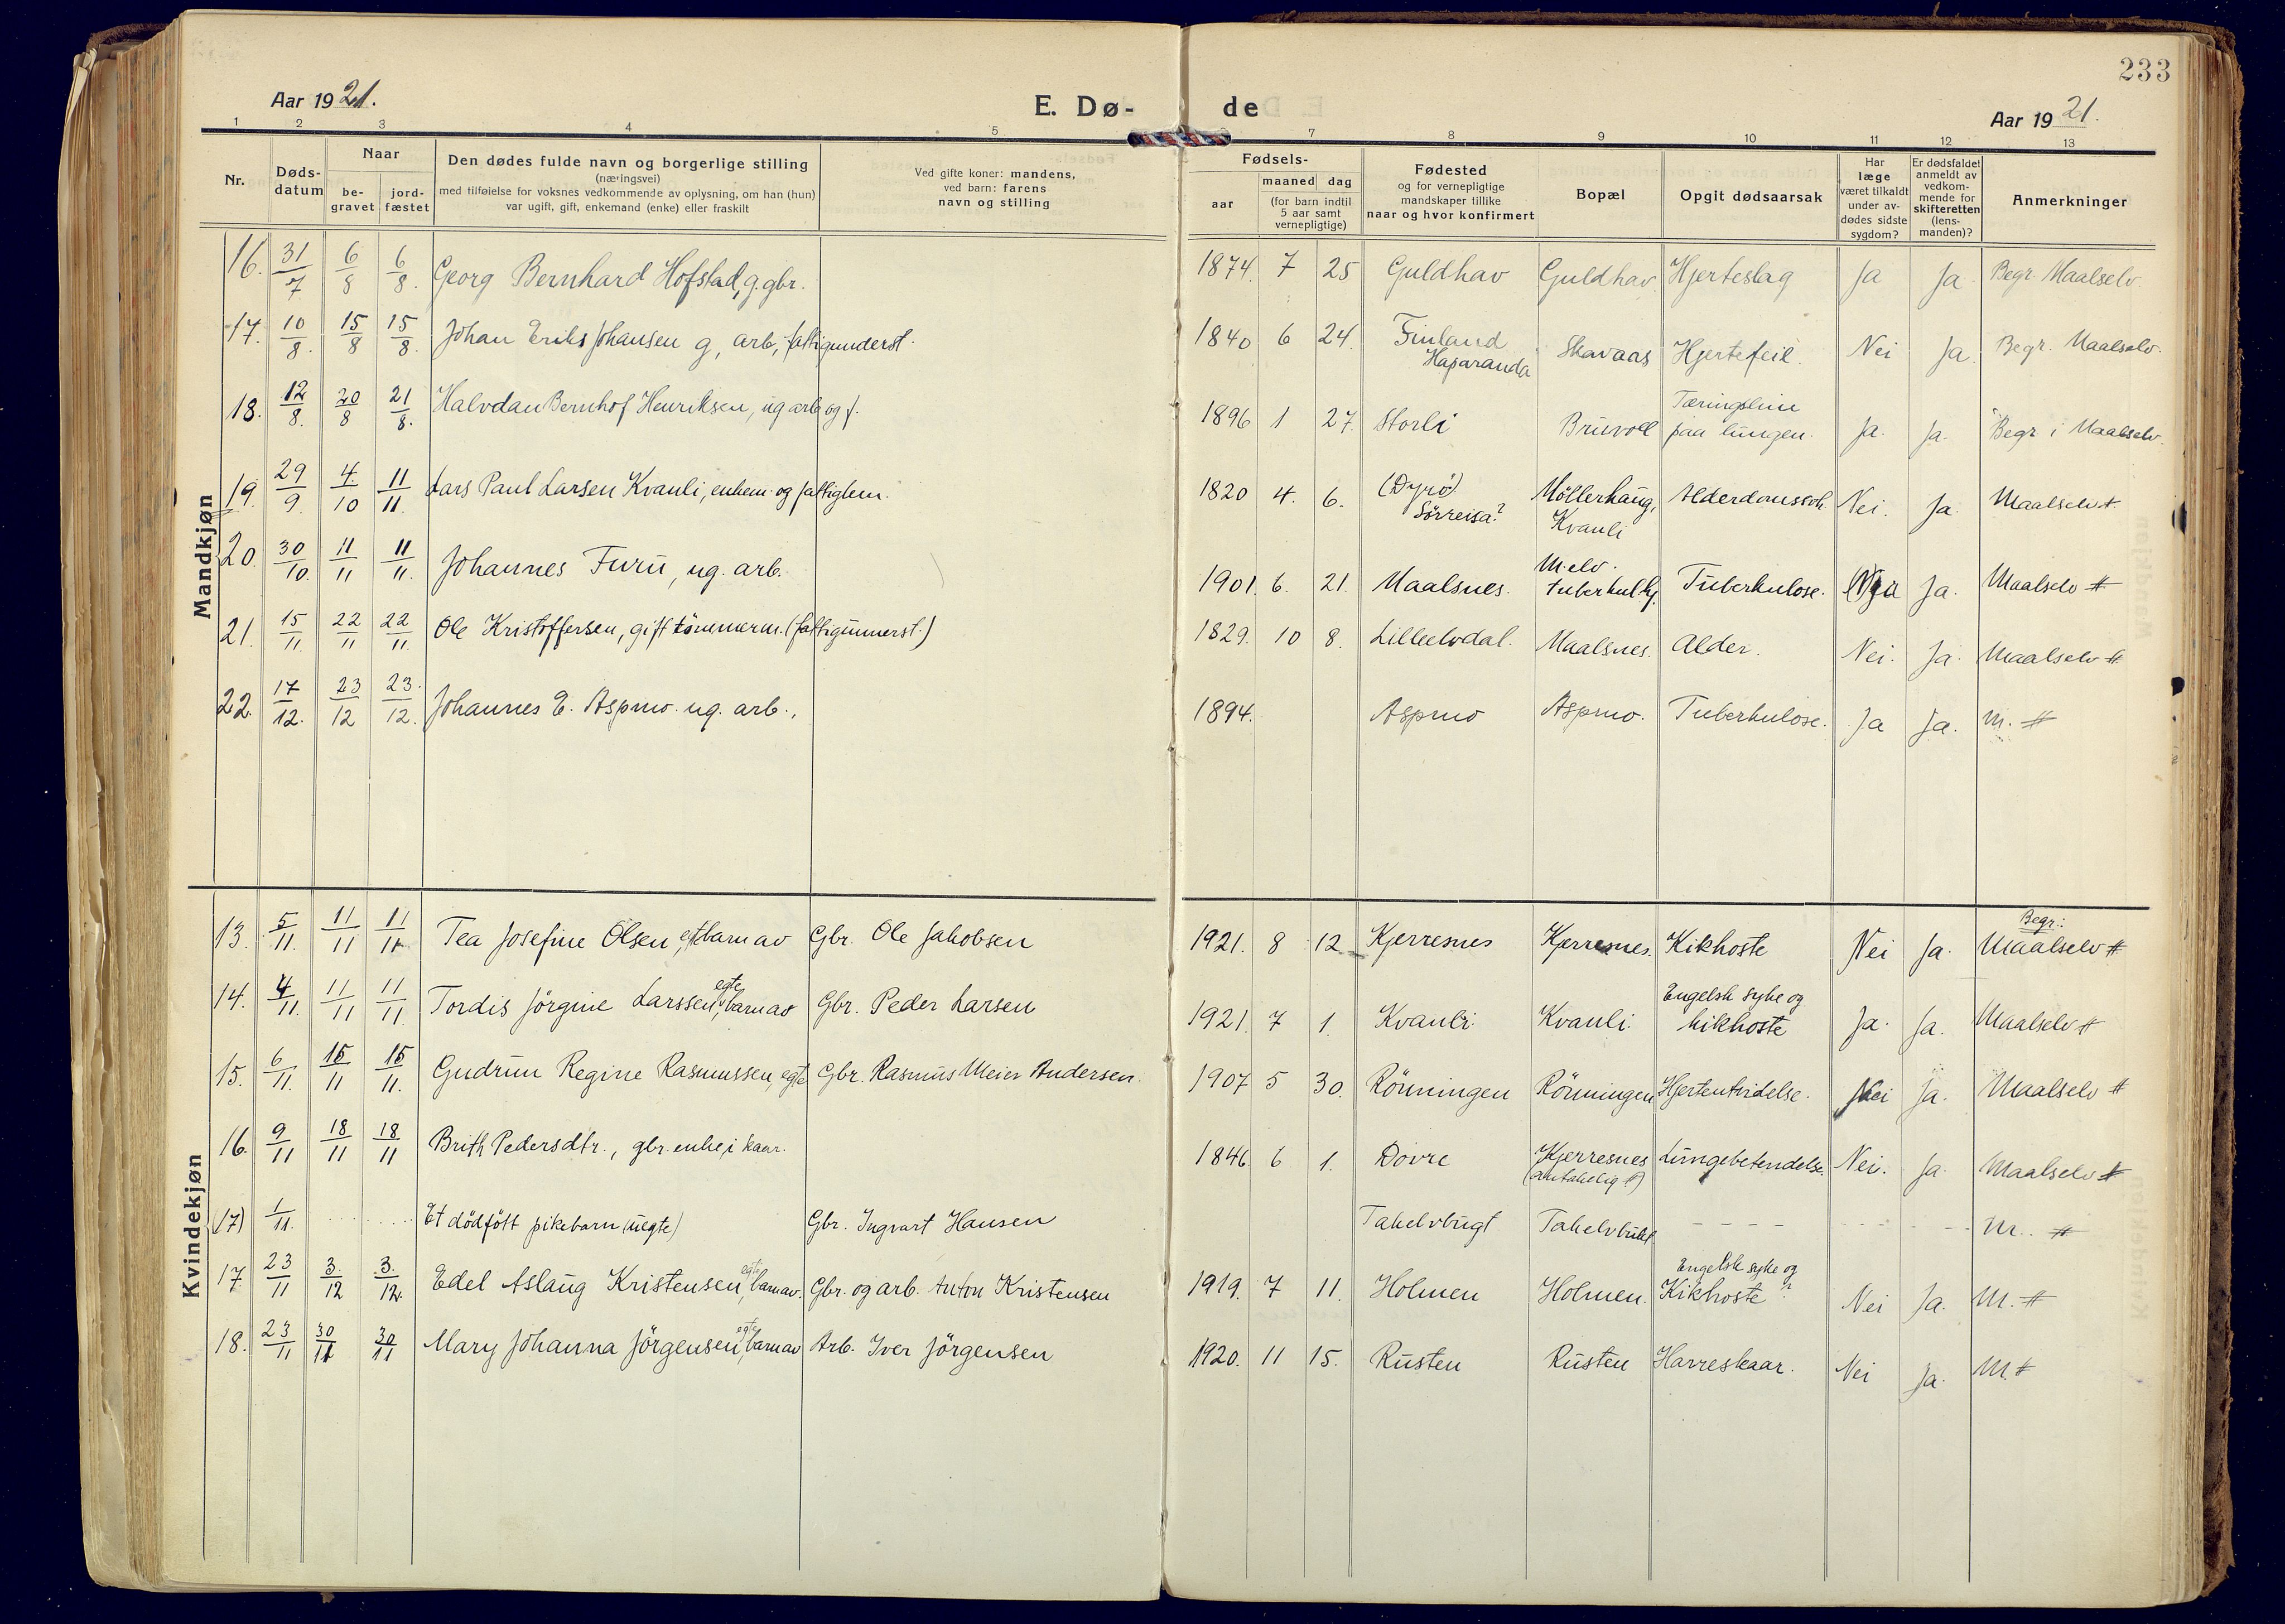 233
Aar 1921.
E. Dø- de
Aar 1921.
1 2 3 4 5 7 8 9 10 11 12 13
Nr.
Døds-
datum
Naar
be-
gravet
jord-
fæstet
Den dødes fulde navn og borgerlige stilling
(næringsvei)
med tilføielse for voksnes vedkommende av oplysning, om han (hun)
var ugift, gift, enkemand (enke) eller fraskilt
Ved gifte koner: mandens,
ved barn: farens
navn og stilling
Fødsels-
aar
maaned dag
(for barn indtil
5 aar samt
vernepligtige)
Fødested
og for vernepligtige
mandskaper tillike
naar og hvor konfirmert
Bopæl
Opgit dødsaarsak
Har
læge
været tilkaldt
under av-
dødes sidste
sygdom?
Er dødsfaldet
anmeldt av
vedkom-
mende for
skifteretten
(lens-
manden)?
Anmerkninger
Mandkjøn
16. 31/7 6/8 6/8. Georg Bernhard Hofstad, g. gbr. 1874. 7 25 Guldhav Guldhav. Hjerteslag Ja Ja Begr. Maalselv.
17. 10/8. 15/8 15/8. Johan Eriks Johansen g, arb, fattigunderst. 1840 6 24. Finland Haparanda Skavaas Hjertefeil. Nei Ja. Begr. Maalselv.
18. 12/8. 20/8 21/8. Halvdan Bernhof Henriksen, ug arb og f. 1896 1 27. Storli Bruvoll Tæringslive paa lungen. Ja. Ja. Begr i Maalselv.
19. 29/9. 4/10 11/11. Lars Paul Larsen Kvanli, enkem. og fattiglem. 1820 4. 6. (Dyrö) Sörreisa? Möllerhaug, Kvanli Alderdomssvk. Nei. Ja Maalselv #
20. 30/10. 11/11 11/11. Johannes Furu, ug. arb. 1901. 6. 21. Maalsnes. M.elv. tuberkulhj. Tuberkulose. Ja Ja. Maalselv #
21. 15/11. 22/11 22/11. Ole Kristoffersen, gift (fattigunnerst.) 1829. 10 8. Lilleelvdal. Maalsnes. Alder. Nei. Ja. Maalselv #
22. 17/12. 23/12 23/12. Johannes E. Aspmo. ug. arb., 1894. Aspmo Aspmo. Tuberkulose. Ja Ja. M. #
Kvindekjøn
13. 5/11. 11/11 11/11 Tea Josefine Olsen, egt. barn av Gbr. Ole Jakobsen 1921. 8 12 Kjerresnes Kjerresnes. Kikhoste Nei Ja. Begr.: Maalselv #
14. 4/11. 11/11 11/11. Tordis Jörgine Larssen, egte barn av Gbr. Peder Larsen 1921. 7 1. Kvanli Kvanli. Engelsk syke og kikhoste Ja. Ja. Maalselv #
15. 6/11. 15/11 15/11. Gudrun Regine Rasmussen, egte Gbr. Rasmus Meier Andersen. 1907 5 30. Rönningen Rönningen Hjertentvidelse. Nei Ja. Maalselv #
16. 9/11 18/11 18/11 Brith Pedersdtr., gbr. enke, i kaar. 1846. 6 1. Dovre Kjerresnes (antakelig) Lungebetendelse. Nei. Ja Maalselv #
(17) 1/11. Et dödfött pikebarn (uegte) Gbr. Ingvart Hansen Takelvbugt Takelvbukt M. #
17 23/11 3/12 3/12. Edel Aslaug Kristensen, egte barn av. Gbr. og arb. Anton Kristensen 1919. 7 11. Holmen Holmen. Engelsk syke og Kikhoste? Nei Ja. M. #
18. 23/11 30/11 30/11 Mary Johanna Jörgensen, egte barn av Arb. Iver Jörgensen 1920. 11 15. Rusten Rusten Harreskaar. Nei Ja. M. #